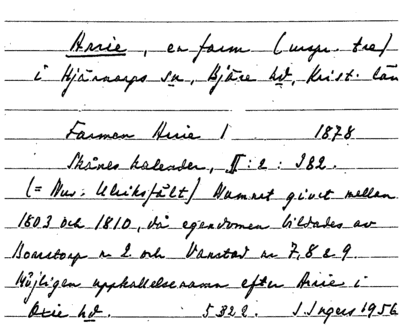 Arrie, en farm (urspr. tre)
i Hjärnarps sn, Bjäre hd, Krist. län
Farmen Arrie 1 1878
Skånes kalender, II:2: 382.
(= Nuv. Ulriksfält) Namnet givet mellan
1803 och 1810, då egendomen bildades av
nr 2 och Vanstad nr 7, 8 & 9.
Möjligen uppkallelsenamn efter Arrie i
Oxie hd. 5322. I. Ingers 1956